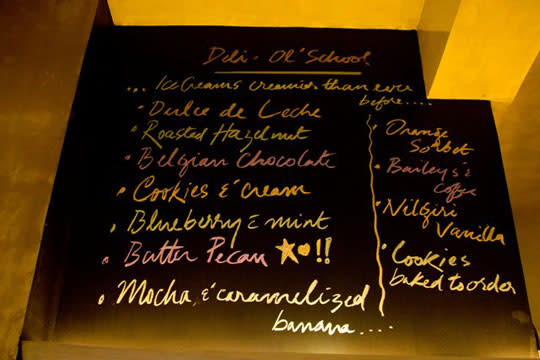 Deli - Ol' School
... Ice Creams creamier than ever
before....
• Dulce de Leche
• Roasted Hazelnut
• Belgian Chocolate
• Cookies & cream
• Blueberry & mint
• Butter Pecan ★♥!!
• Mocha & caramelized
banana....
• Orange
Sorbet
• Bailey's &
Coffee
• Nilgiri
Vanilla
• Cookies
baked to order